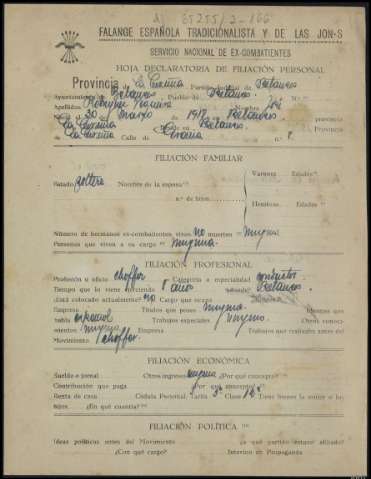 FALANGE ESPAÑOLA TRADICIONALISTA Y DE LAS JON-S
SERVICIO NACIONAL DE EX-COMBATIENTES
HOJA DECLARATORIA DE FILIACIÓN PERSONAL
Provincia de La Coruña Partido Judicial de Betanzos
Ayuntamiento de Betanzos Pueblo de Betanzos
Apellidos Nombre José
30 Marzo 1917 en Betanzos
La Coruña en Betanzos Provincia
La Coruña Calle de n.° 8
FILIACIÓN FAMILIAR
Estado soltero Nombre de la esposa
Varones Edades
n.° de hijos
Hembras Edades
Número de hermanos ex-combatientes vivos no muertos ninguno
Personas que viven a su cargo ninguna
FILIACIÓN PROFESIONAL
Profesión u oficio choffer Categoría o especialidad conductor
Tiempo que lo viene 1 año Betanzos
¿Está colocado actualmente? no Cargo que ocupa
Empresa Títulos que posee ninguno Idiomas que
habla español Trabajos especiales ninguno Otros conoci-
mientos ninguno Empresa Trabajos que realizaba antes del
Movimiento choffer
FILIACIÓN ECONÓMICA
Sueldo o jornal Otros ingresos ninguno ¿Por qué concepto?
Contribución que paga ¿Por qué concepto?
Renta de casa Cédula Personal, Tarifa 3ª Clase
¿En qué cuantía?
FILIACIÓN POLÍTICA
Ideas políticas antes del Movimiento ¿a qué partido estuvo afiliado?
¿Con qué cargo? Intervino en Propaganda